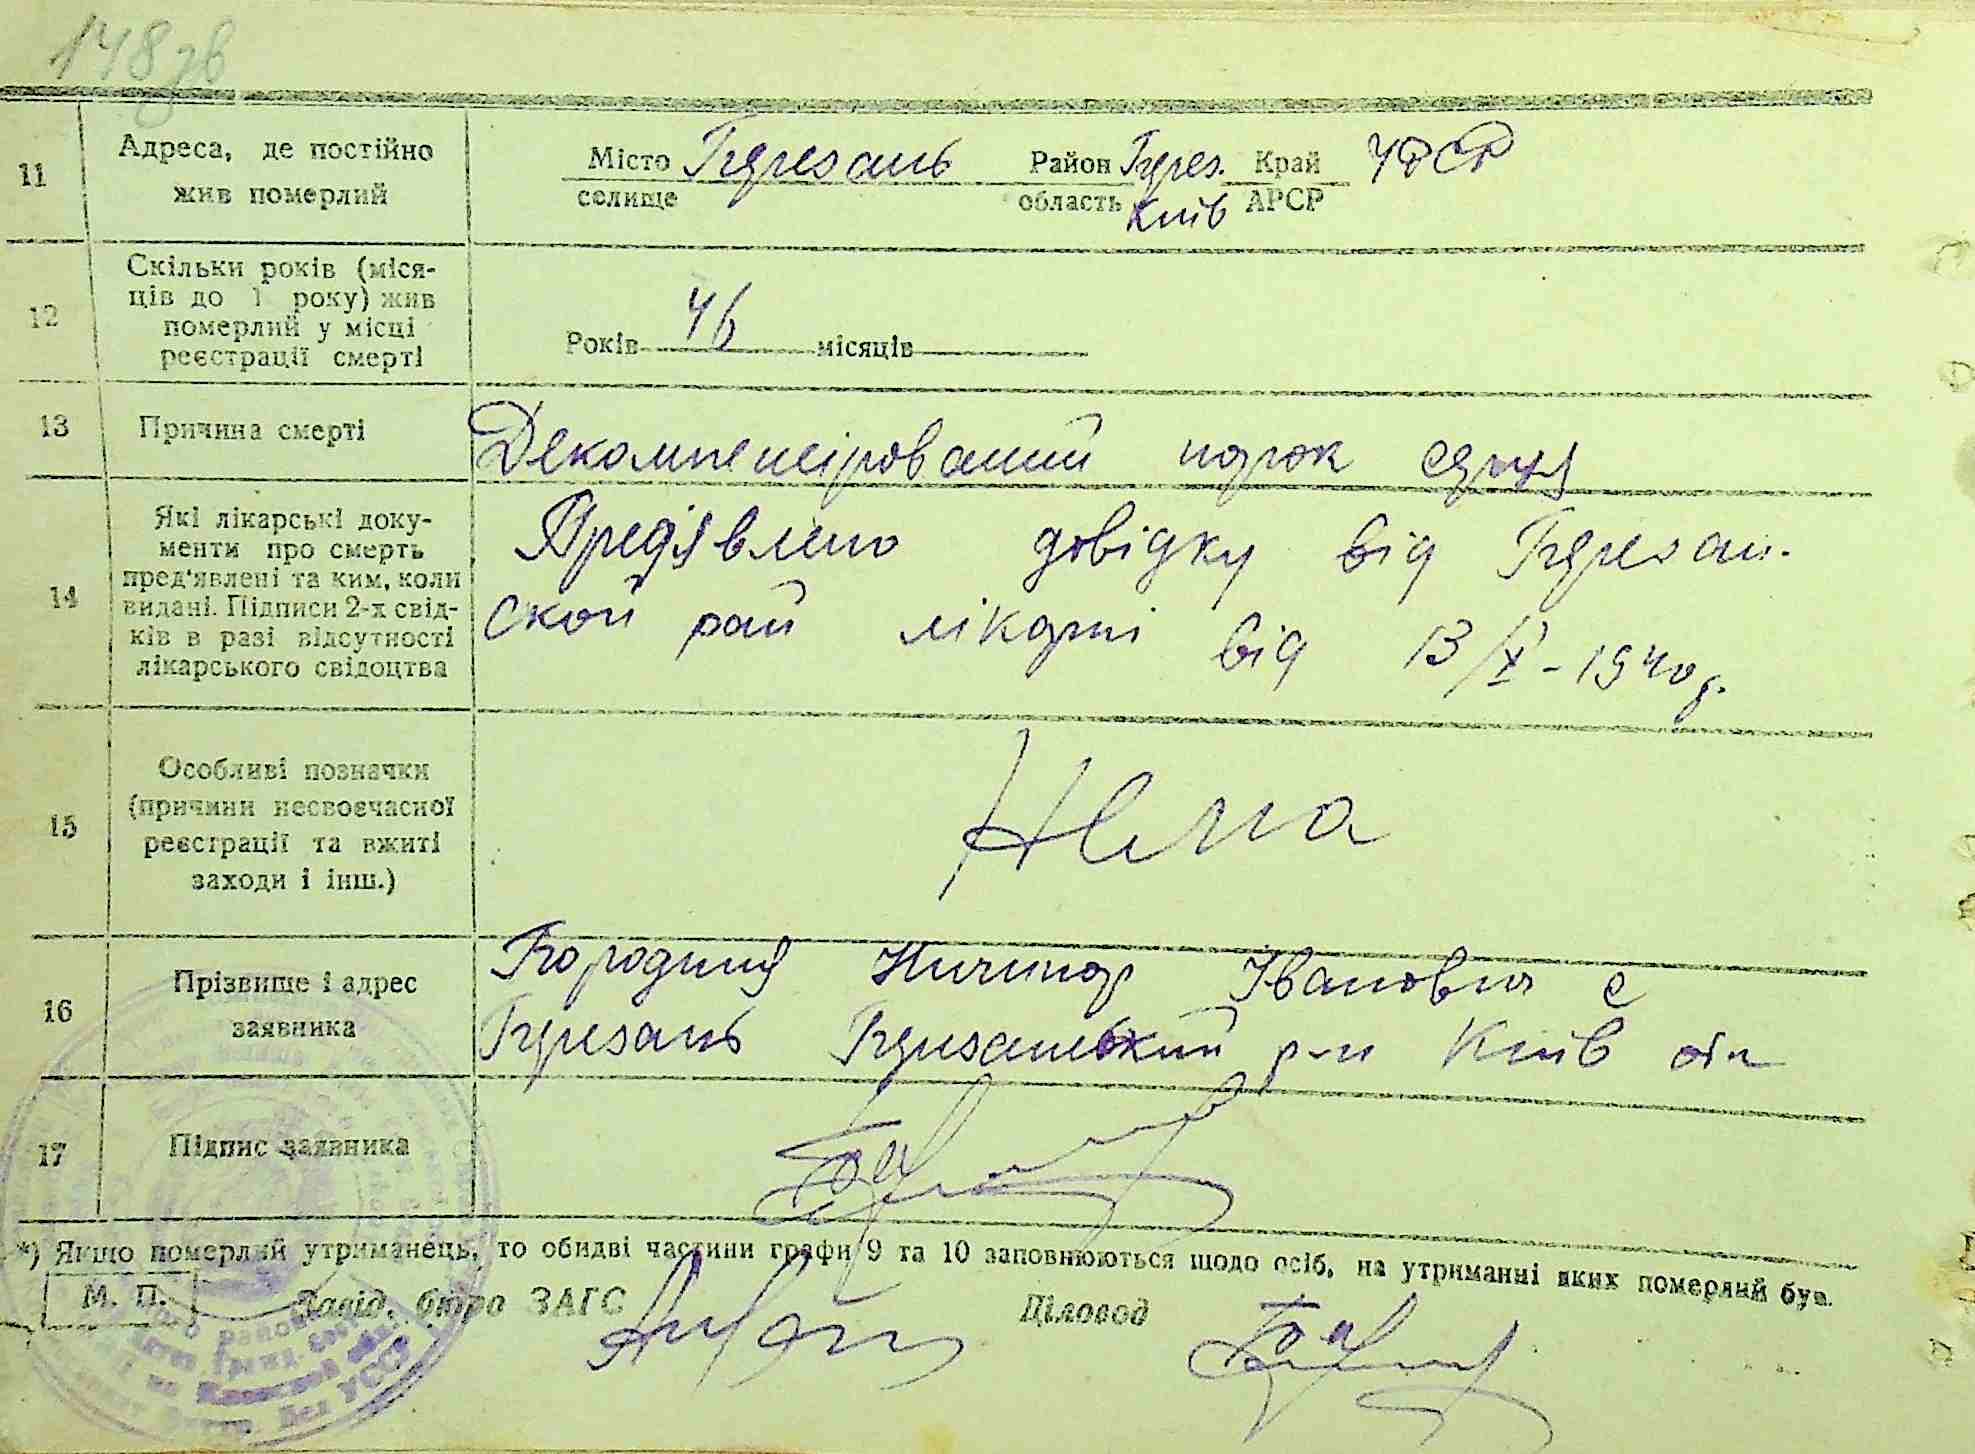 148 зв
11
Адреса, де постійно
жив померлий
Місто Березань Район Берез. Край УРСР
селище область Київ АРСР
12
Скільки років (міся-
ців до 1 року) жив
померлий у місці
реєстрації смерті
Років 46 місяців
13
Причина смерті
Декомпенсірований порок серця
14
Які лікарські доку-
менти про смерть
пред'явлені та ким, коли
видані. Підписи 2-х свід-
ків в разі відсутності
лікарського свідоцтва
Предявлено довідку від Березан-
ской рай лікарні від 13/X-1940 р.
15
Особливі позначки
(причини несвоєчасної
реєстрації та вжиті
заходи і інш.)
Нема
16
Прізвище і адрес
заявника
Іванович с
Березань Березанський р-н Київ обл
17
Підпис заявника
*) Якщо померлий утриманець, то обидві частини графи 9 та 10 заповнюються щодо осіб, на утриманні яких померлий був.
М. П.
Завід. бюро ЗАГС
Діловод